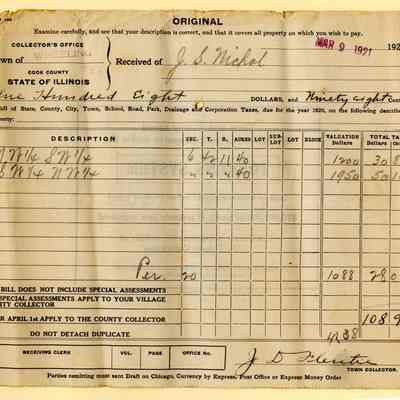 ORIGINAL
Examine carefully, and see that your description is correct, and that it covers all property on which you wish to pay.
COLLECTOR'S OFFICE
MAR 9 1921
192
own of
Received of J. S. Nichol
COOK COUNTY
STATE OF ILLINOIS
One Hundred Eight DOLLARS, and Ninety eight
full of State, County, City, Town, School, Road, Park, Drainage and Corporation Taxes, due for the year 1920, on the following
ounty:
DESCRIPTION SEC. T. R. ACRES LOT SUB-LOT LOT BLOCK VALUATION Dollars TOTAL TA Dollars
N W 1/4 S W 1/4 6 42 11 40 1200 30 8
S W 1/4 N W 1/4 " " " 40 1950 50 1
Per. 20 1088 28 0
BILL DOES NOT INCLUDE SPECIAL ASSESSMENTS
SPECIAL ASSESSMENTS APPLY TO YOUR VILLAGE
TY COLLECTOR
R APRIL 1st APPLY TO THE COUNTY COLLECTOR 108 9
DO NOT DETACH DUPLICATE
4238
RECEIVING CLERK VOL. PAGE OFFICE No.
J D
TOWN COLLECTOR.
Parties remitting must sent Draft on Chicago, Currency by Express, Post Office or Express Money Order